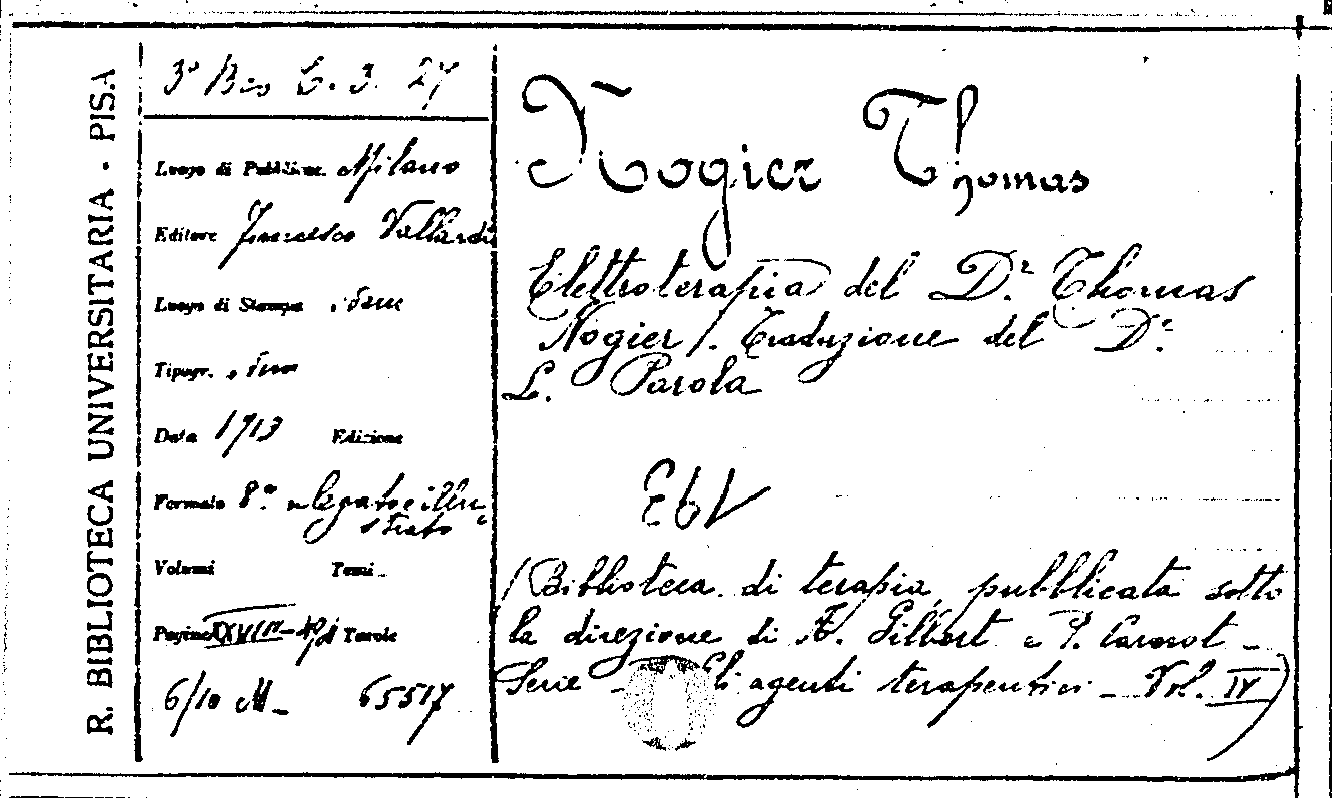 R. BIBLIOTECA UNIVERSITARIA - PISA
3° Bis C. 3. 27
Luogo di Pubblicaz. Milano
Editore Francesco Vallardi
Luogo di Stampa
Tipogr.
Data 1913 Edizione
Formato 8° legato e illu-
strato
Volumi Tomi
Pagine XXVIII- Tavole
6/10 M- 65517
Nogier Thomas
Elettroterapia del Dr. Thomas
Nogier /. Traduzione del Dr.
L. Parola
(Biblioteca di terapia, pubblicata sotto
la direzione di A. Gilbert e P. Carnot -
Serie - Gli agenti terapeutici - Vol. IV)